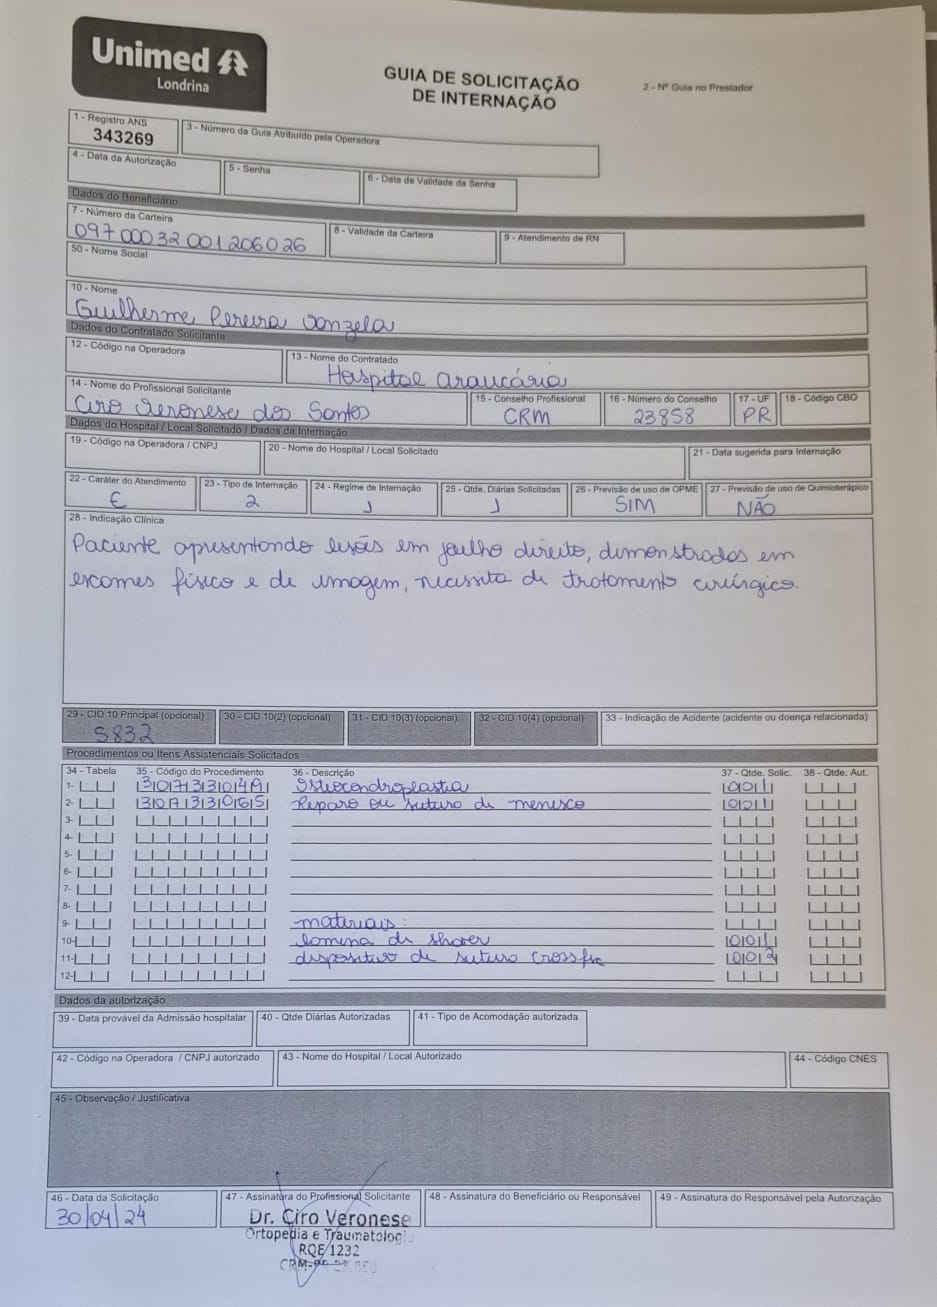 Unimed
Londrina
GUIA DE SOLICITAÇÃO
DE INTERNAÇÃO
2 - Nº Guia no Prestador
1 - Registro ANS
343269
3 - Número da Guia Atribuído pela Operadora
4 - Data da Autorização
5 - Senha
6 - Data de Validade da Senha
Dados do Beneficiário
7 - Número da Carteira
09700032001206026
8 - Validade da Carteira
9 - Atendimento de RN
50 - Nome Social
10 - Nome
Guilherme Pereira Vanzela
Dados do Contratado Solicitante
12 - Código na Operadora
13 - Nome do Contratado
Hospital Araucária
14 - Nome do Profissional Solicitante
Ciro Veronese dos Santos
15 - Conselho Profissional
CRM
16 - Número do Conselho
23858
17 - UF
PR
18 - Código CBO
Dados do Hospital / Local Solicitado / Dados da Internação
19 - Código na Operadora / CNPJ
20 - Nome do Hospital / Local Solicitado
21 - Data sugerida para Internação
22 - Caráter do Atendimento
E
23 - Tipo de Internação
2
24 - Regime de Internação
1
25 - Qtde. Diárias Solicitadas
1
26 - Previsão de uso de OPME
SIM
27 - Previsão de uso de Quimioterápico
NÃO
28 - Indicação Clínica
Paciente apresentando lesões em joelho direito, demonstrados em
exames físico e de imagem, necessita de tratamento cirúrgico.
29 - CID 10 Principal (opcional)
S832
30 - CID 10(2) (opcional)
31 - CID 10(3) (opcional)
32 - CID 10(4) (opcional)
33 - Indicação de Acidente (acidente ou doença relacionada)
Procedimentos ou Itens Assistenciais Solicitados
34 - Tabela 35 - Código do Procedimento 36 - Descrição 37 - Qtde. Solic. 38 - Qtde. Aut.
1- 30733049 Osteocondroplastia 001
2- 30733065 Reparo ou sutura de menisco 001
3-
4-
5-
6-
7-
8-
9- materiais:
10- lamina de shaver 001
11- dispositivo de sutura Crossfix 002
12-
Dados da autorização
39 - Data provável da Admissão hospitalar
40 - Qtde Diárias Autorizadas
41 - Tipo de Acomodação autorizada
42 - Código na Operadora / CNPJ autorizado
43 - Nome do Hospital / Local Autorizado
44 - Código CNES
45 - Observação / Justificativa
46 - Data da Solicitação
30/04/24
47 - Assinatura do Profissional Solicitante
Dr. Ciro Veronese
Ortopedia e Traumatologia
RQE 1232
48 - Assinatura do Beneficiário ou Responsável
49 - Assinatura do Responsável pela Autorização